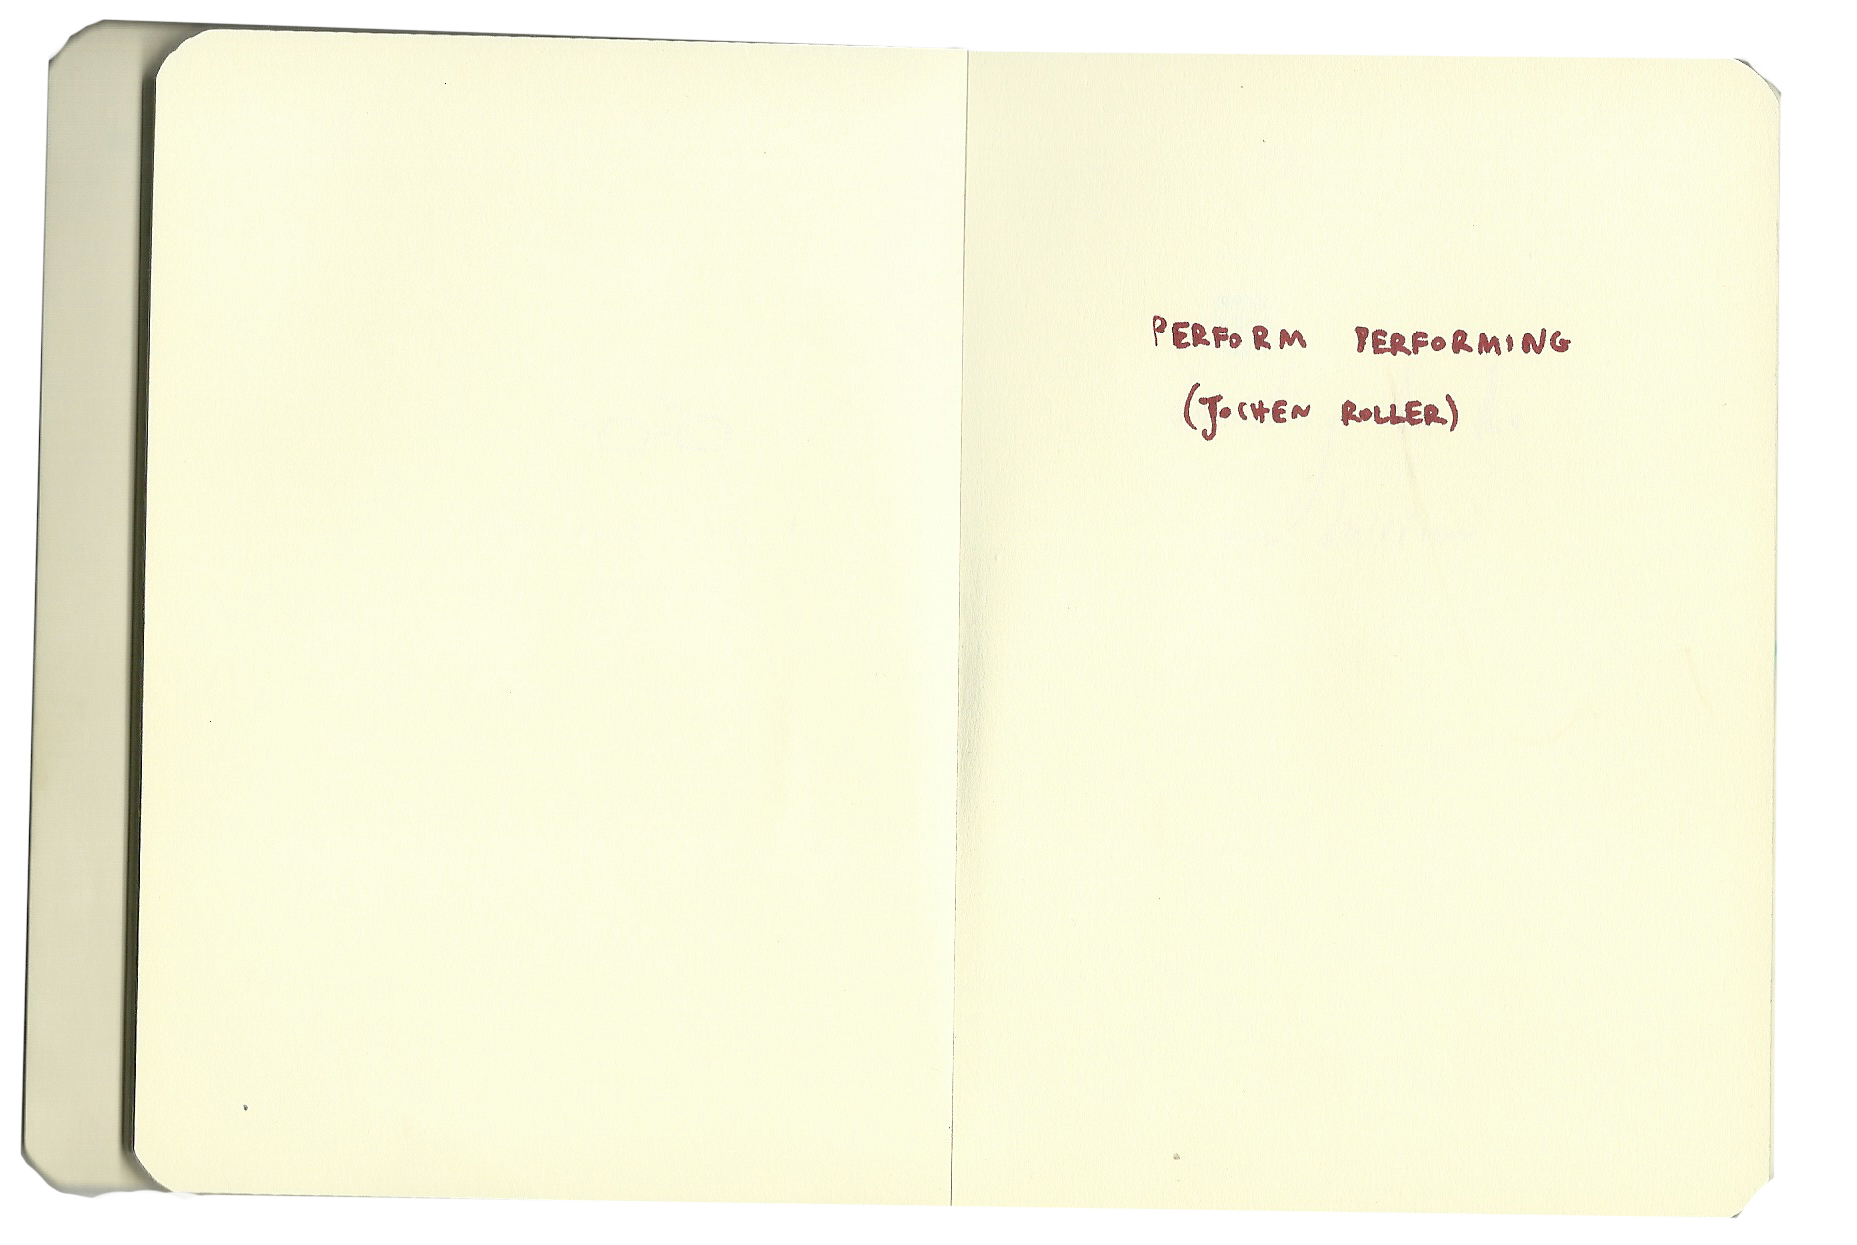 PERFORM PERFORMING
(JOCHEN ROLLER)